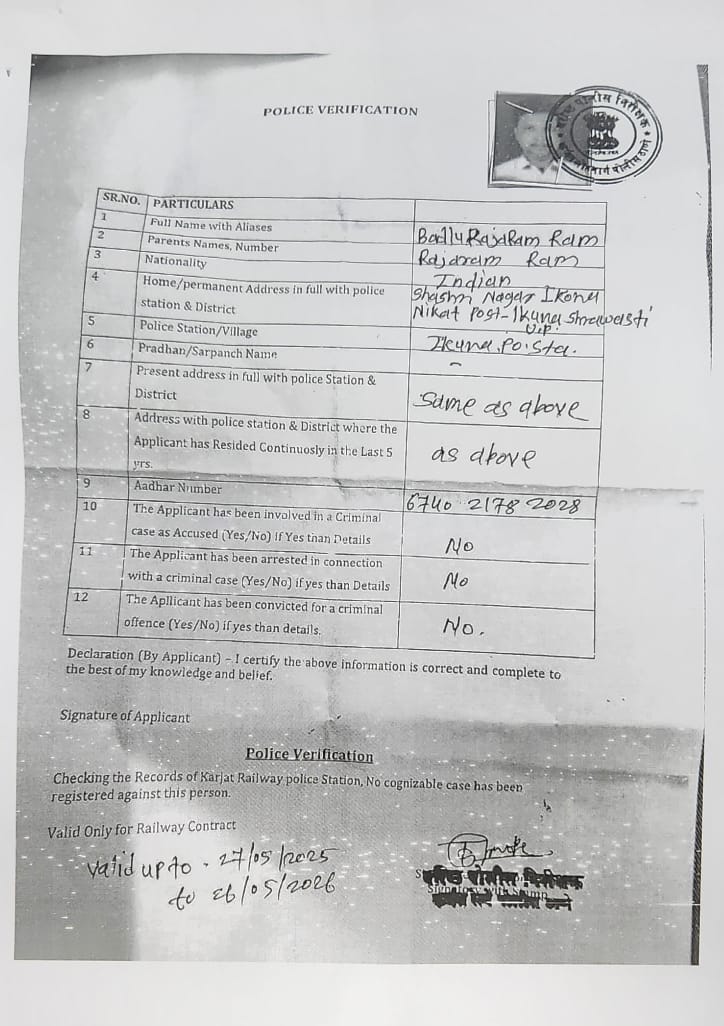 POLICE VERIFICATION
पोलीस निरीक्षक
SR.NO. PARTICULARS
1 Full Name with Aliases Badlu RajaRam Ram
2 Parents Names, Number Rajaram Ram
3 Nationality Indian
4 Home/permanent Address in full with police Shashri Nagar Ikona
station & District Nikat Post-Ikuna Shrawasti
U.P.
5 Police Station/Village Ikuna. Po. sta.
6 Pradhan/Sarpanch Name -
7 Present address in full with police Station &
District Same as above
8 Address with police station & District where the
Applicant has Resided Continuosly in the Last 5 as above
yrs.
9 Aadhar Number 6740 2178 2028
10 The Applicant has been involved in a Criminal
case as Accused (Yes/No) If Yes than Details No
11 The Applicant has been arrested in connection
with a criminal case (Yes/No) if yes than Details No
12 The Apllicant has been convicted for a criminal
offence (Yes/No) if yes than details. No.
Declaration (By Applicant) – I certify the above information is correct and complete to
the best of my knowledge and belief.
Signature of Applicant
Police Verification
Checking the Records of Karjat Railway police Station, No cognizable case has been
registered against this person.
Valid Only for Railway Contract
Valid up to . 27/05/2025
to 26/05/2026